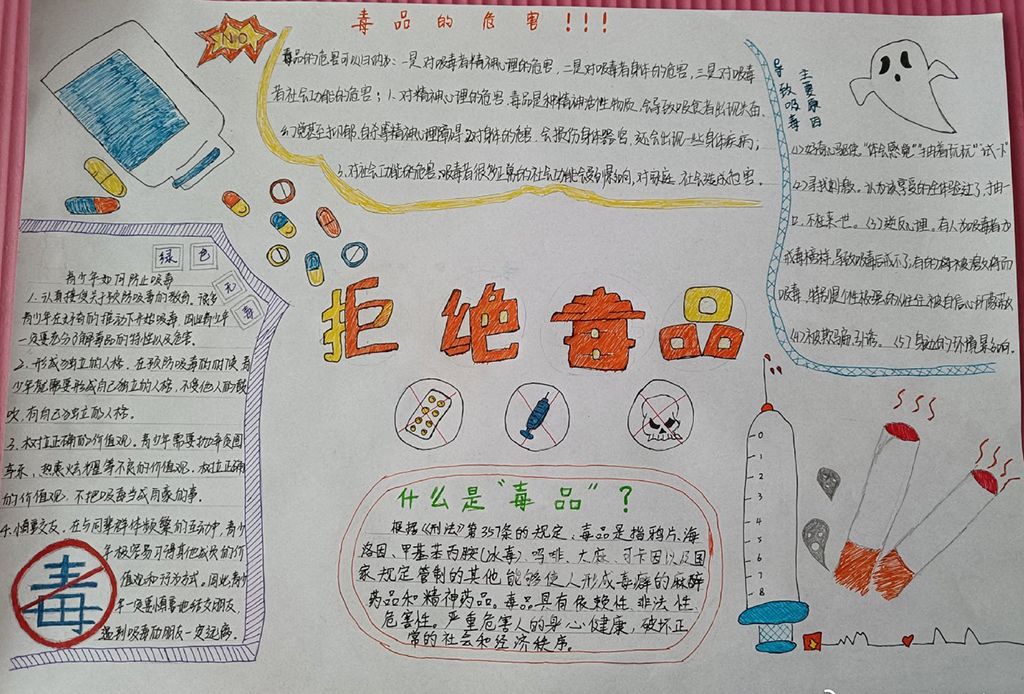 毒品的危害!!!
NO
毒品的危害可以归纳为:一是对吸毒者精神心理的危害,二是对吸毒者身体的危害,三是对吸毒
者社会功能的危害;1.对精神心理的危害:毒品是种精神活性物质,会导致吸食者出现失眠、
幻觉甚至抑郁、自杀等精神心理障碍;2对身体的危害:会损伤身体器官,还会出现一些身体疾病;
3.对社会功能的危害:吸毒者很多正常的社会功能会受到影响,对家庭、社会造成危害.
主要原因
导致吸毒
(1)好奇心驱使."体会感觉""抽着玩玩""试一下"
(2)寻找刺激.认为该享受的全体验过了,抽一
口.不枉来世。(3)逆反心理.有人为吸毒者力
戒毒
吸毒.特别是个性较强的
(4)被欺骗引诱。(5)身边的环境影响.
绿色
无毒
青少年如何防止吸毒
1.认真接受关于预防吸毒的教育.很多
青少年在好奇的推动下开始吸毒,因此青少年
一定要充分了解毒品的特性以及危害.
2.形成独立的人格.在预防吸毒的时候,青
少年就需要形成自己独立的人格,不受他人的鼓
吹,有自己独立的人格.
3.树立正确的价值观.青少年需要
享乐、热衷炫耀等不良的价值观.树立正确
的价值观,不把吸毒当成享乐的事.
4.慎重交友.在与同辈群体频繁的互动中,青少
年极容易习得其他成员的价
值观和行为方式。因此,青少
年一定要慎重地结交朋友,
遇到吸毒的朋友一定远离.
毒
拒绝毒品
什么是"毒品"?
根据《刑法》第357条的规定、毒品是指鸦片、海
洛因、甲基苯丙胺(冰毒)、吗啡、大麻、可卡因以及国
家规定管制的其他能够使人形成毒瘾的麻醉
药品和精神药品。毒品具有依赖性、非法性、
危害性。严重危害人的身心健康,破坏正
常的社会和经济秩序。
0
1
2
3
4
5
6
7
8